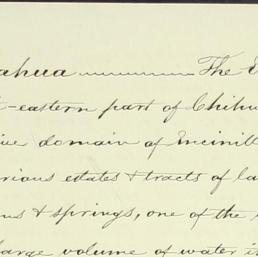 ahua The E
-eastern part of Chihu
ive domain of Encinill
arious estates & tracts of la
ns & springs, one of the
large volume of water i